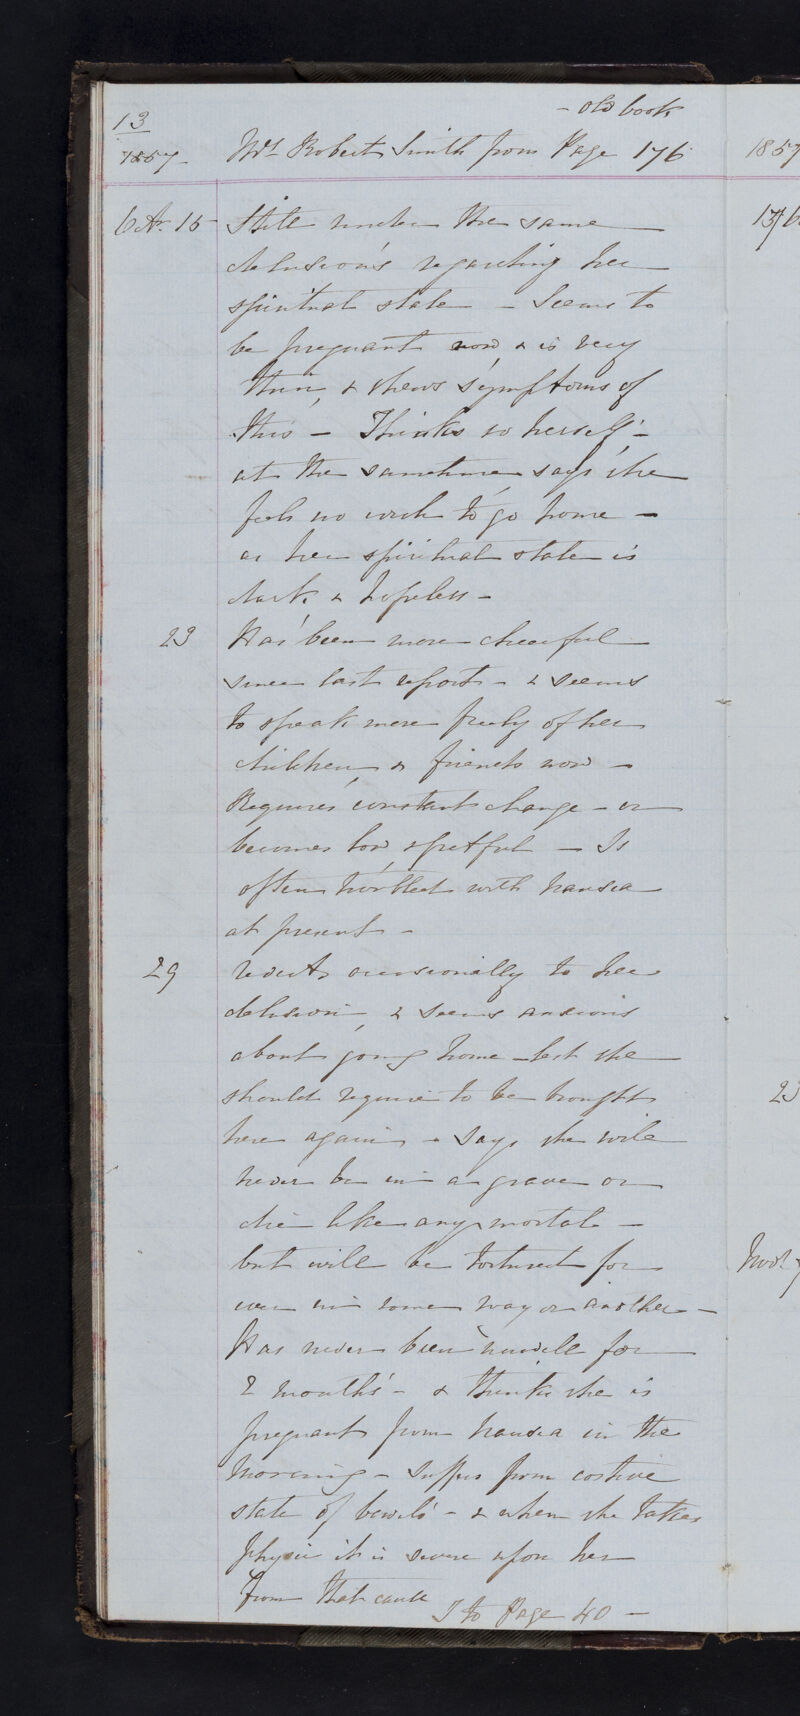 13
- old book
1857- Mrs Robert Smith from Page 176
Oct. 15 Still under the same
delusions regarding her
spiritual state - Seems to
be pregnant now & is very
thin, & shews symptoms of
this - Thinks so herself -
at the sametime says she
feels no wish to go home -
as her spiritual state is
dark & hopeless -
23 Has been more cheerful
since last report - & seems
to speak more freely of her
children & friends now -
Requires constant change - or
becomes low & fretful - Is
often troubled with nausea
at present -
29 reverts occasionally to her
delusion & seems anxious
about going home - lest she
should require to be brought
here again - Says she will
never be in a grave or
die like any mortal -
but will be tortured for
ever in some way or another -
Has never been unwell for
2 months - & thinks she is
pregnant from nausea in the
morning - Suffers from costive
state of bowels - & when she takes
physic it is severe upon her
from that cause
T to Page 40 -
1857
23
Novr